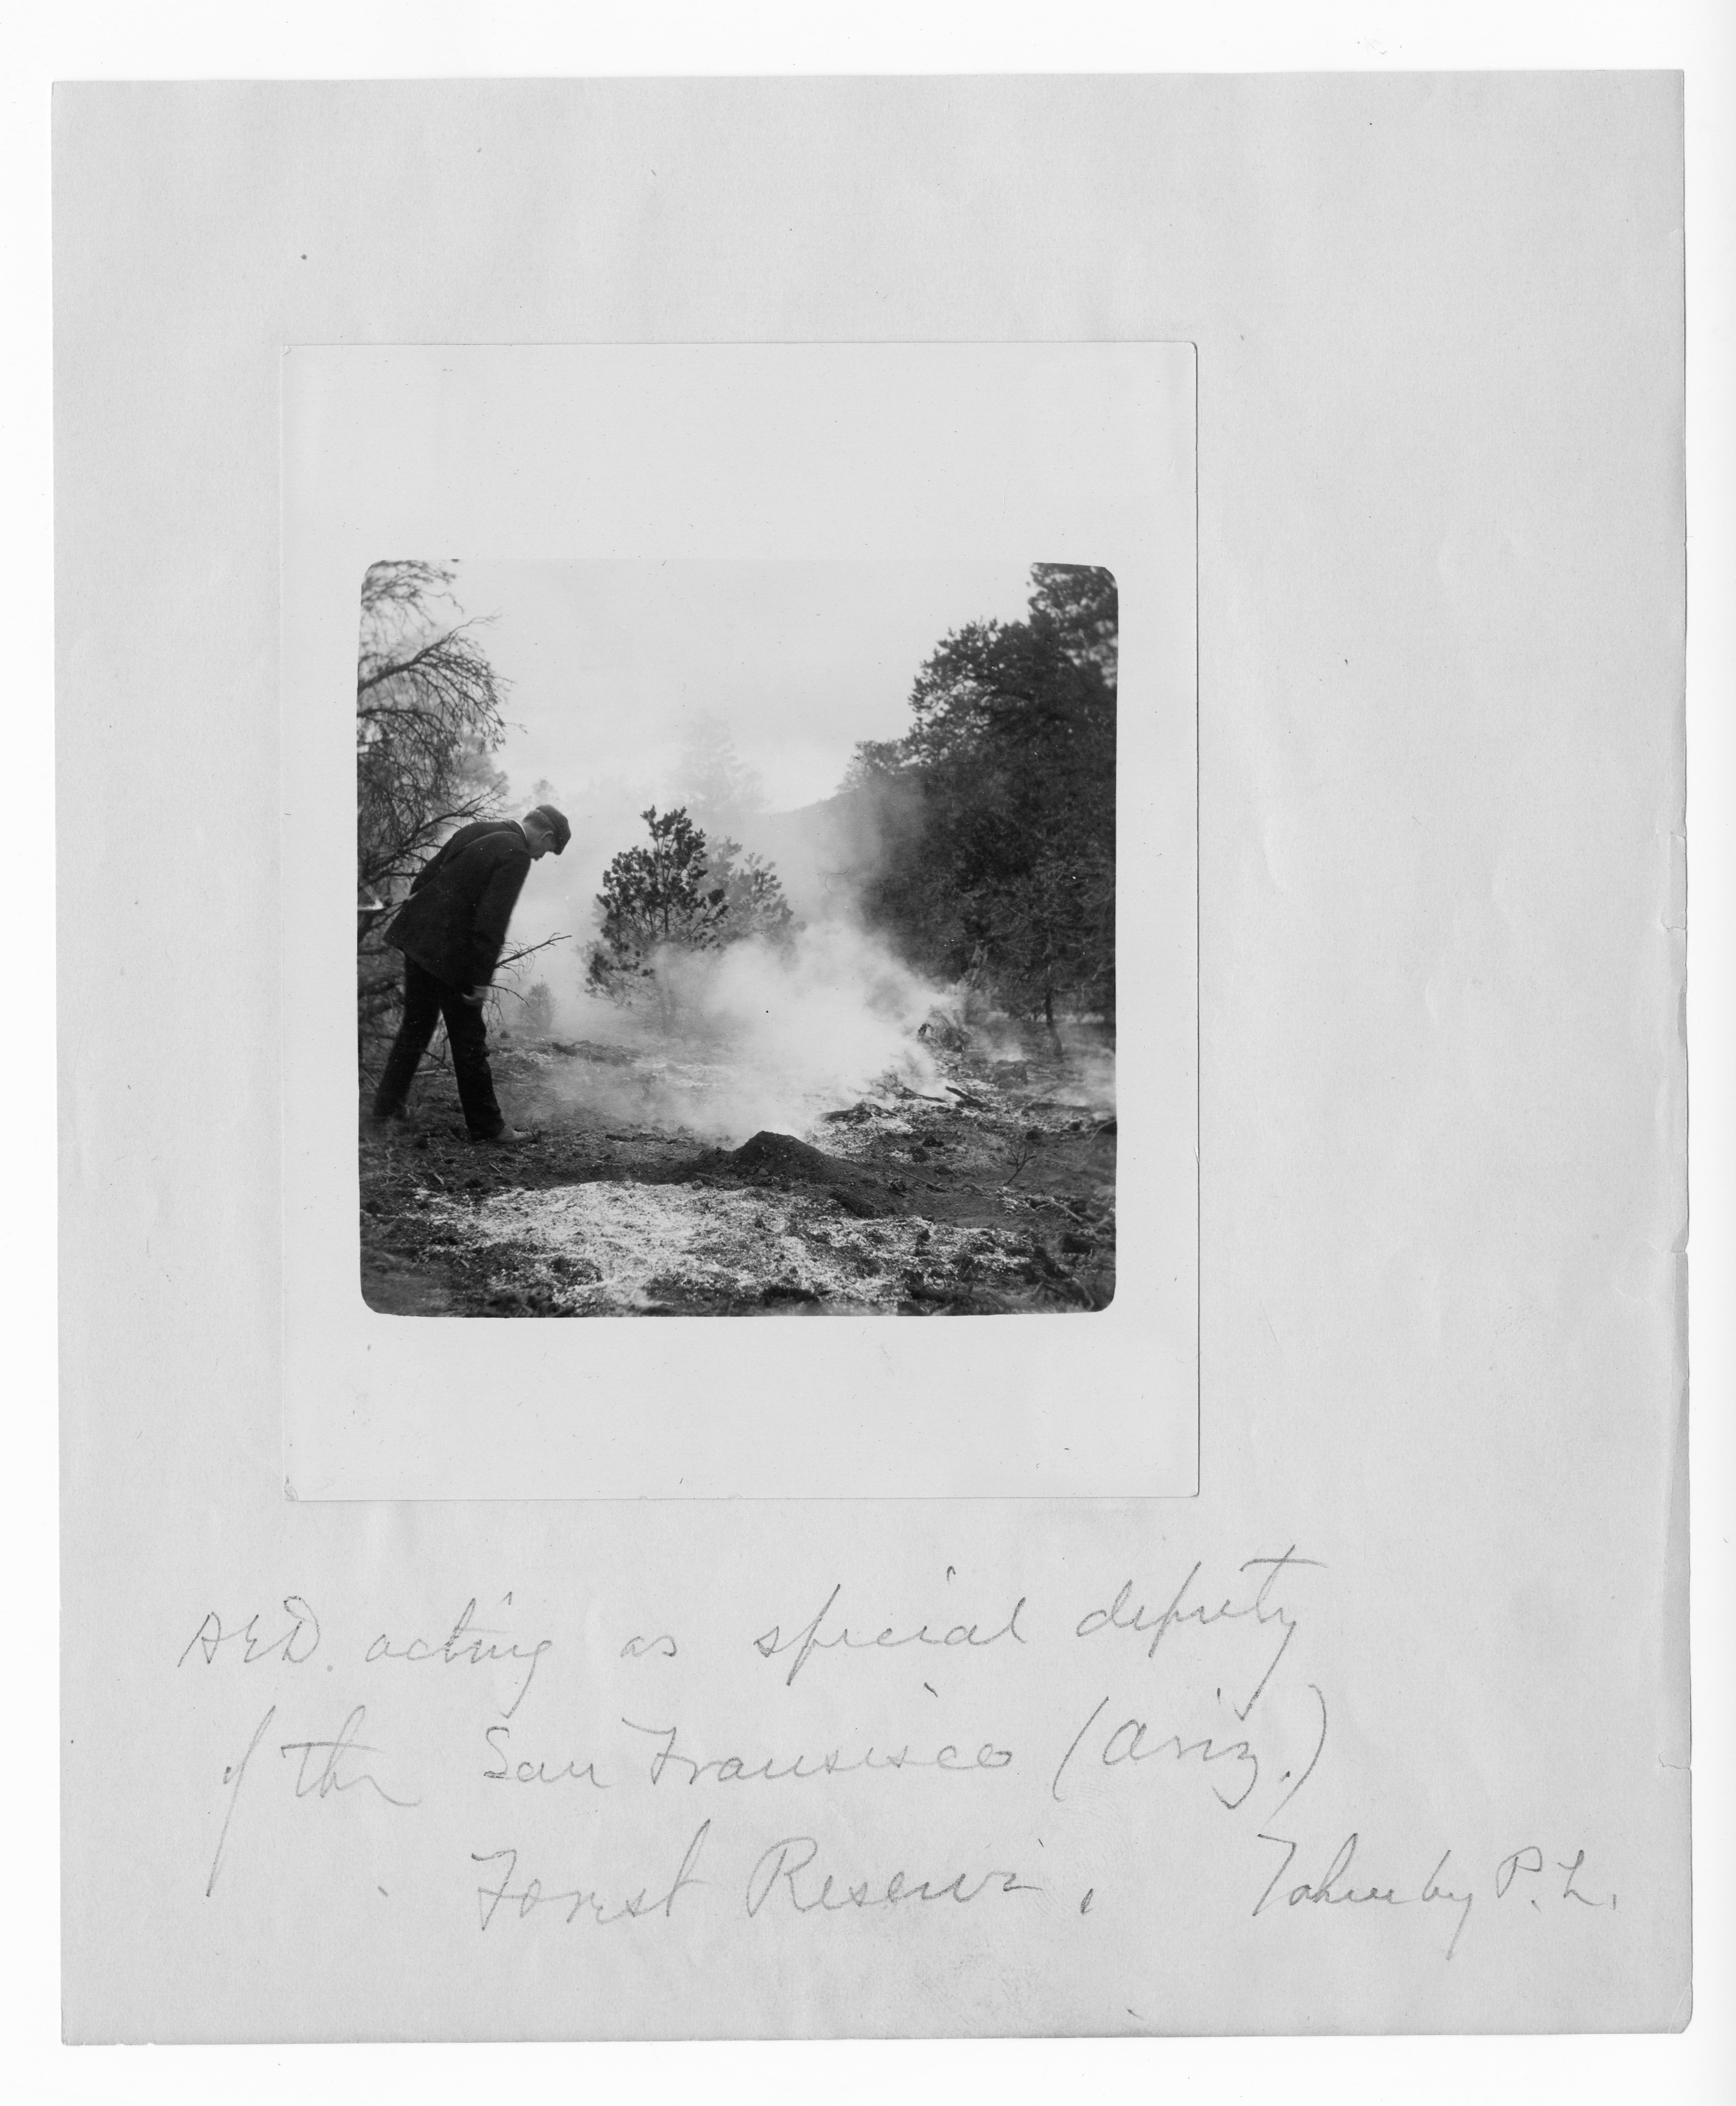 AED. acting as special deputy
of the San Fransisco (Ariz.)
Forest Reserve. Taken by P.L.